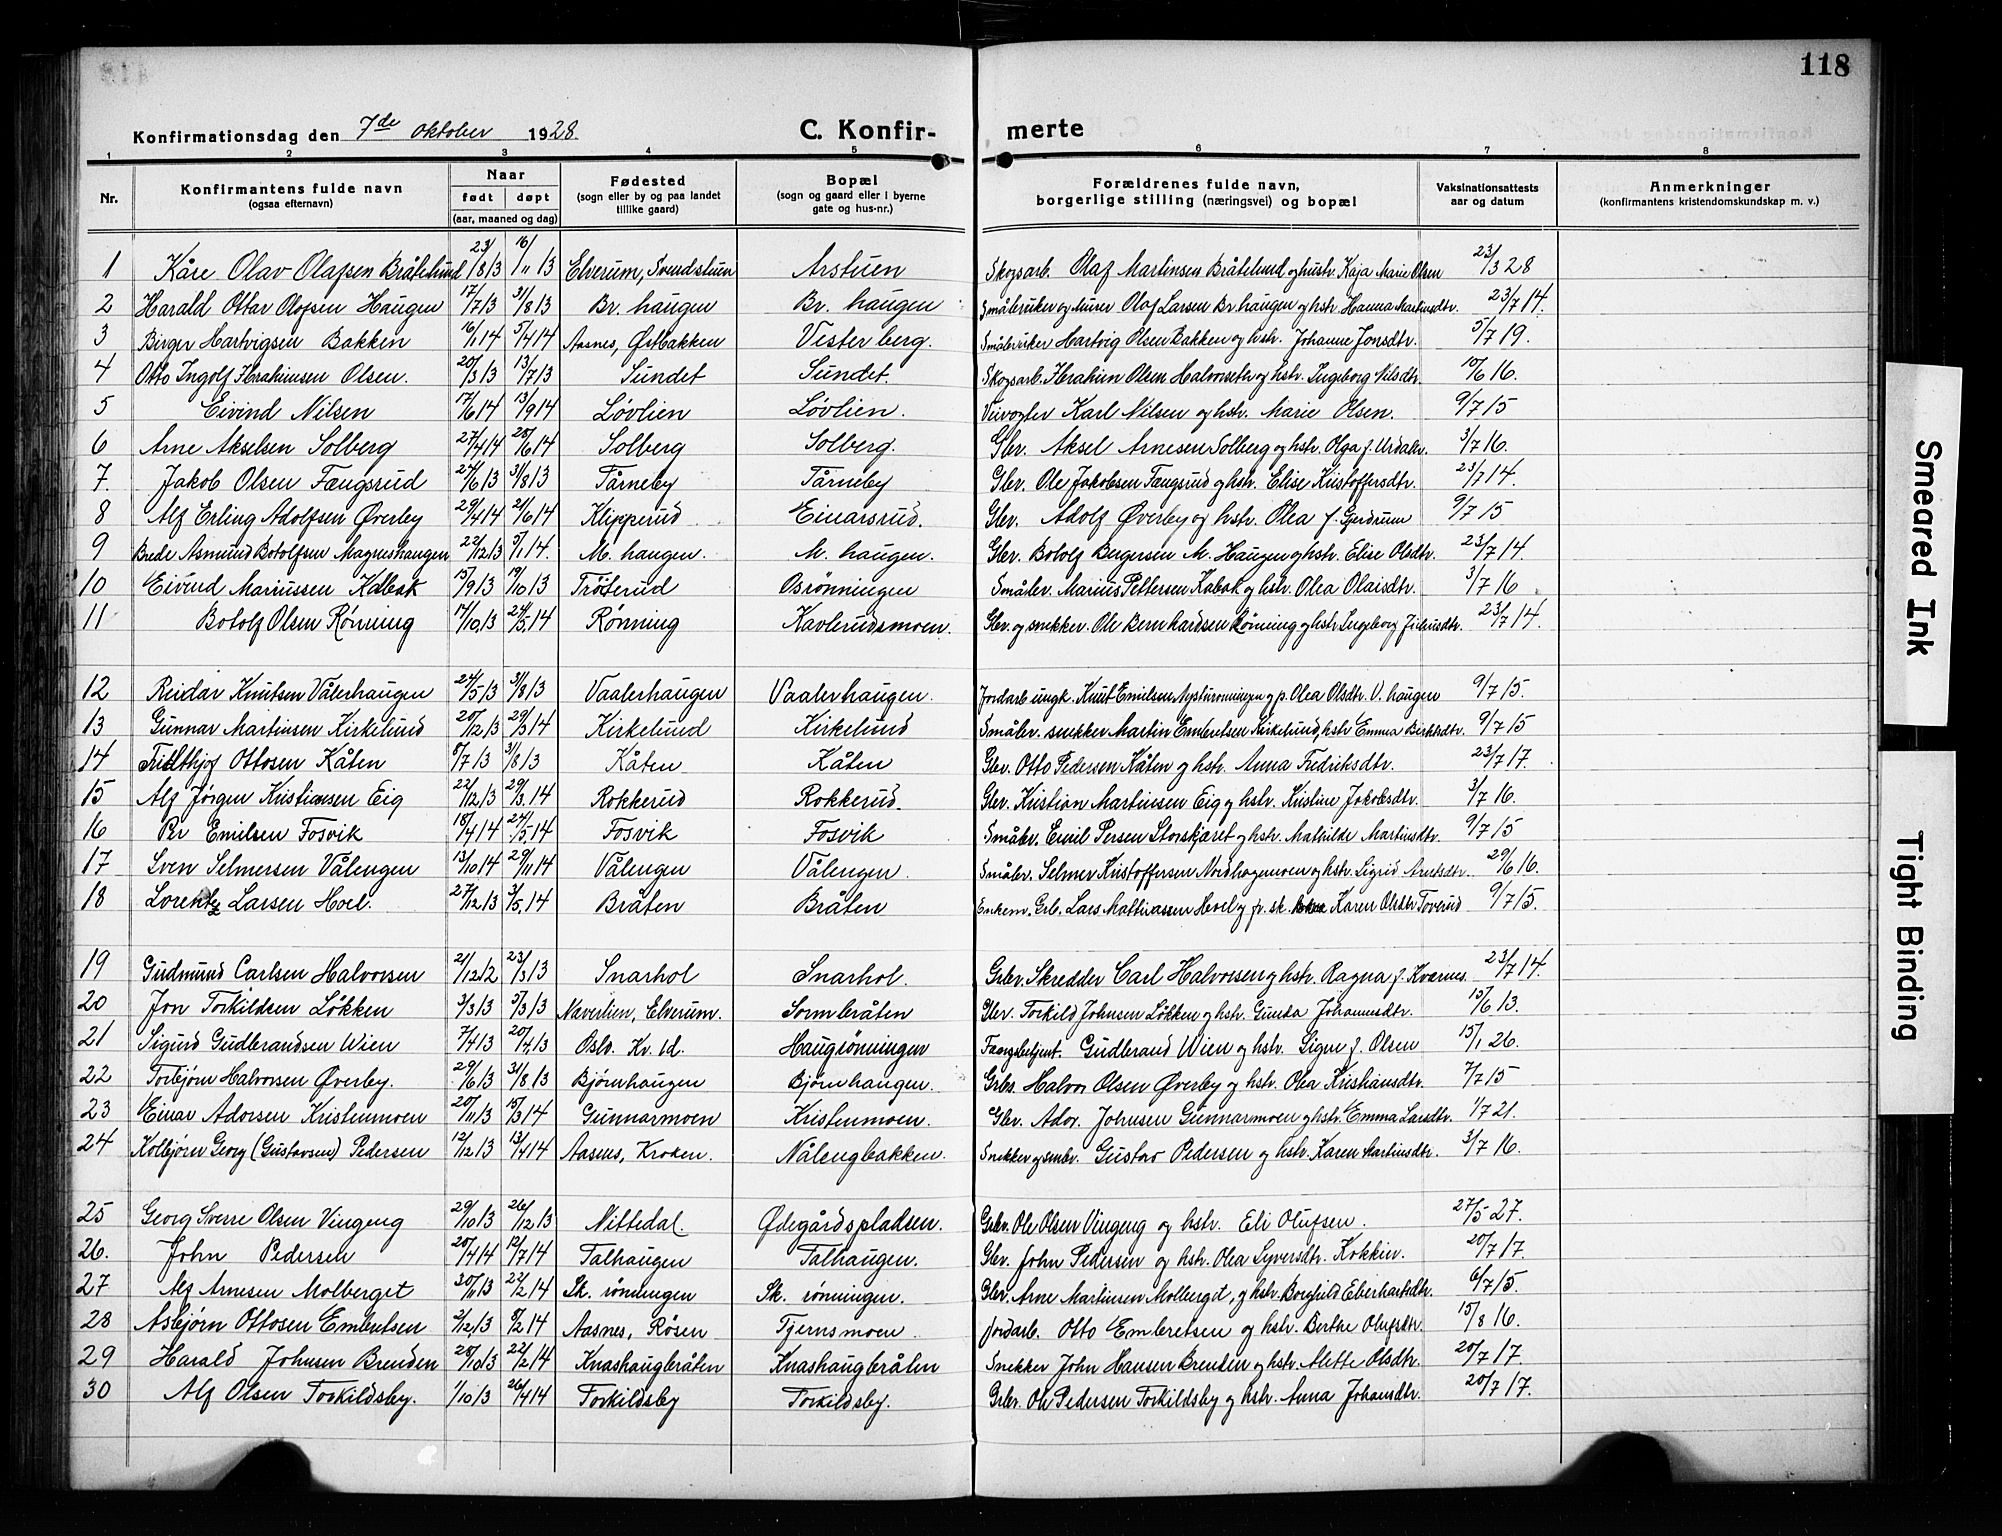 118
Konfirmationsdag den 7de oktober 1928.
C. Konfir-merte
1 2 3 4 5 6 7 8
Nr. Konfirmantens fulde navn (ogsaa efternavn) Naar født døpt (aar, maaned og dag) Fødested (sogn eller by og paa landet tillike gaard) Bopæl (sogn og gaard eller i byerne gate og hus-nr.) Forældrenes fulde navn, borgerlige stilling (næringsvei) og bopæl Vaksinationsattests aar og datum Anmerkninger (konfirmantens kristendomskundskap m. v.)
1 Kåre Olav Olafsen Bråtelund 23/8 13 16/11 13 Elverum, Svendstuen Arstuen Skogsarb. Olaf Martinsen Bråtelund og hustr. Kaja Marie Olsen 23/3 28
2 Harald Ottar Olofsen Haugen 17/7 13 31/8 13 Br. haugen Br. haugen Småbruker og murer Olaf Larsen Br. haugen og hstr. Hanna Martinsdtr. 23/7 14.
3 Birger Hartvigsen Bakken 16/1 14 5/4 14 Aasnes, Østbakken Vesterberg. Småbruker Hartvig Olsen Bakken og hstr. Johanne Jonsdtr. 5/7 19.
4 Otto Ingolf Ibrahimsen Olsen. 20/3 13 13/7 13 Sundet Sundet. Skogsarb. Ibrahim Olsen Halvorseth og hstr. Ingeborg Nilsdtr. 10/6 16.
5 Eivind Nilsen 17/6 14 13/9 14 Løvlien Løvlien. Veivogter Karl Nilsen og hstr. Marie Olsen. 9/7 15
6 Arne Akselsen Solberg 27/4 14 20/6 14 Solberg Solberg. Gbr. Aksel Arnesen Solberg og hstr. Olga f. Urdahl. 3/7 16.
7. Jakob Olsen Fængsrud 24/6 13 31/8 13 Tårneby Tårneby Gbr. Ole Jakobsen Fængsrud og hstr. Elise Kristoffersdtr. 23/7 14.
8 Alf Erling Adolfsen Øverby 29/4 14 21/6 14 Klipperud Einarsrud. Gbr. Adolf Øverby og hstr. Olea f. Gjerdrum 9/7 15
9 Brede Asmund Botolfsen Magneshaugen 22/12 13 5/1 14. M. haugen. M. haugen. Gbr. Botolf Bergersen M. Haugen og hstr. Elise Olsdtr. 23/7 14.
10 Eivind Mariussen Kabak 15/9 13 19/10 13 Trøterud Osrønningen Småbr. Marius Pettersen Kabak og hstr. Olea Olaisdtr. 3/7 16
11 Botolf Olsen Rønning 17/10 13 24/5 14 Rønning Kavlerudsmoen. Gbr. og snekker. Ole Bernhardsen Rønning og hstr. Ingeborg 23/7 14.
12 Reidar Knutsen Vålerhaugen 24/5 13 31/8 13 Vaalerhaugen Vaalerhaugen. Jordarb. ungk. Knut Emilsen og p. Olea Olsdtr. V. haugen 9/7 15.
13 Gunnar Martinsen Kirkelund 20/12 13 29/3 14 Kirkelund Kirkelund Småbr. snekker Martin Embretsen Kirkelund, hstr Emma 9/7 15
14 Fridthjof Ottosen Kåten 8/7 13 31/8 13 Kåten Kåten Gbr. Otto Pedersen Kåten og hstr. Anna Fredriksdtr. 23/7 17.
15 Alf Jørgen Kristiansen Eig 22/12 13 29/3. 14 Rokkerud Rokkerud. Gbr. Kristian Martinsen Eig og hstr. Kristine Jakobsdtr. 3/7 16.
16 Per Emilsen Fosvik 18/4 14 24/5. 14 Fosvik Fosvik Småbr. Emil Persen Storskjæret og hstr. Mathilde Martinsdtr. 9/7 15
17 Sven Selmersen Vålengen 13/10 14 29/11 14 Vålengen Vålengen. Småbr. Selmer Kristoffersen Nordhagenmoen og hstr. Sigrid Arntsdtr. 29/6 16.
18 Lorentz Larsen Hoel. 27/12 13 3/5. 14 Bråten Bråten Enkem. Grb. Lars Mathiassen Hoel og fr. sk. Karen Olsdtr Toverud 9/7 15.
19 Gudmund Carlsen Halvorsen 21/12 12 23/3 13 Snarhol Snarhol. Grbr. Skredder Carl Halvorsen og hstr. Ragna f. Kværnes. 23/7 14.
20 Jon Torkildsen Løkken 3/3 13 5/3 13 Næverlien, Elverum. Sormbråten Gbr. Torkild Johnsen Løkken og hstr. Gunda Johannesdtr. 15/6 13.
21 Sigurd Gudbrandsen Wien 7/4 13 20/4. 13 Oslo. Kv. kl. Haugrønningen Fangsbetjent. Gudbrand Wien og hstr. Signe f. Olsen 15/1 26.
22 Torbjørn Halvorsen Øverby. 29/6 13 31/8 13 Bjørnhaugen Bjørnhaugen. Grbr. Halvor Olsen Øverby og hstr. Olea Kristiansdtr. 7/7 15
23 Einar Adorsen Kristenmoen 20/11 13 15/3 14 Gunnarmoen Kristenmoen. Gbr. Ador. Johnsen Gunnarmoen og hstr. Emma Larsdtr. 1/7 21.
24 Kolbjørn Georg (Gustavsen) Pedersen 12/12 13 13/4 14 Aasnes, Kroken. Nålengbakken. Snekker og småbr. Gustav Pedersen og hstr. Karen Martinsdtr. 3/7 16.
25 Georg Sverre Olsen Vingeng 29/10 13 26/12 13 Nittedal. Ødegårdspladsen. Grbr. Ole Olsen Vingeng og hstr. Eli Olufsen. 27/5 27.
26. John Pedersen 20/4 14 12/7 14 Talhaugen Talhaugen. Gbr. John Pedersen og hstr. Olea Syversdtr. Kokkin. 20/7 17.
27 Alf Arnesen Molberget 30/11 13 22/2 14 Sk. rønningen Sk. rønningen. Gbr. Arne Martinsen Molberget, og hstr. Borghild Eberhardtdtr. 6/7 15.
28 Asbjørn Ottosen Embretsen 2/12 13 8/2 14 Aasnes, Røsen Tjernsmoen Jordarb. Otto Embretsen og hstr. Berthe Olufsdtr. 15/8 16.
29 Harald Johnsen Brenden 20/10 13 22/2 14 Knashaugbråten Knashaugbråten Snekker John Hansen Brenden og hstr. Alette Olsdtr. 20/7 17.
30 Alf Olsen Torkildsby. 1/10 13 26/4 14 Torkildsby Torkildsby. Grbr. Ole Pedersen Torkildsby og hstr. Anna Johansdtr. 20/7 17.
Smeared Ink
Tight Binding